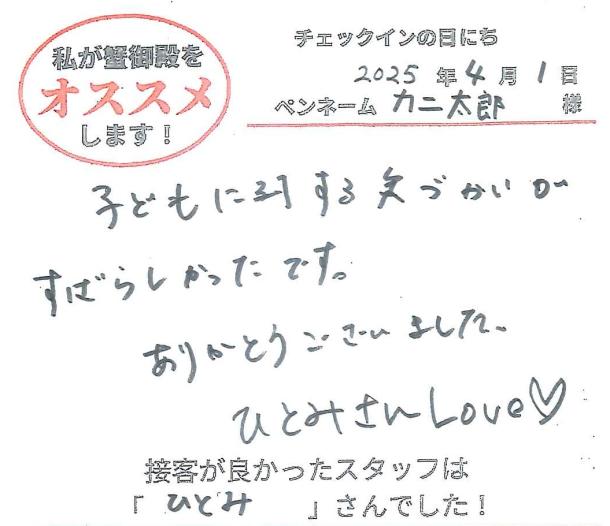 私が蟹御殿を
オススメ
します！
チェックインの日にち
2025年4月1日
ペンネーム カニ太郎 様
子どもに対する気づかいが
すばらしかったです。
ありがとうございました。
ひとみさんLove♡
接客が良かったスタッフは
「ひとみ」さんでした！